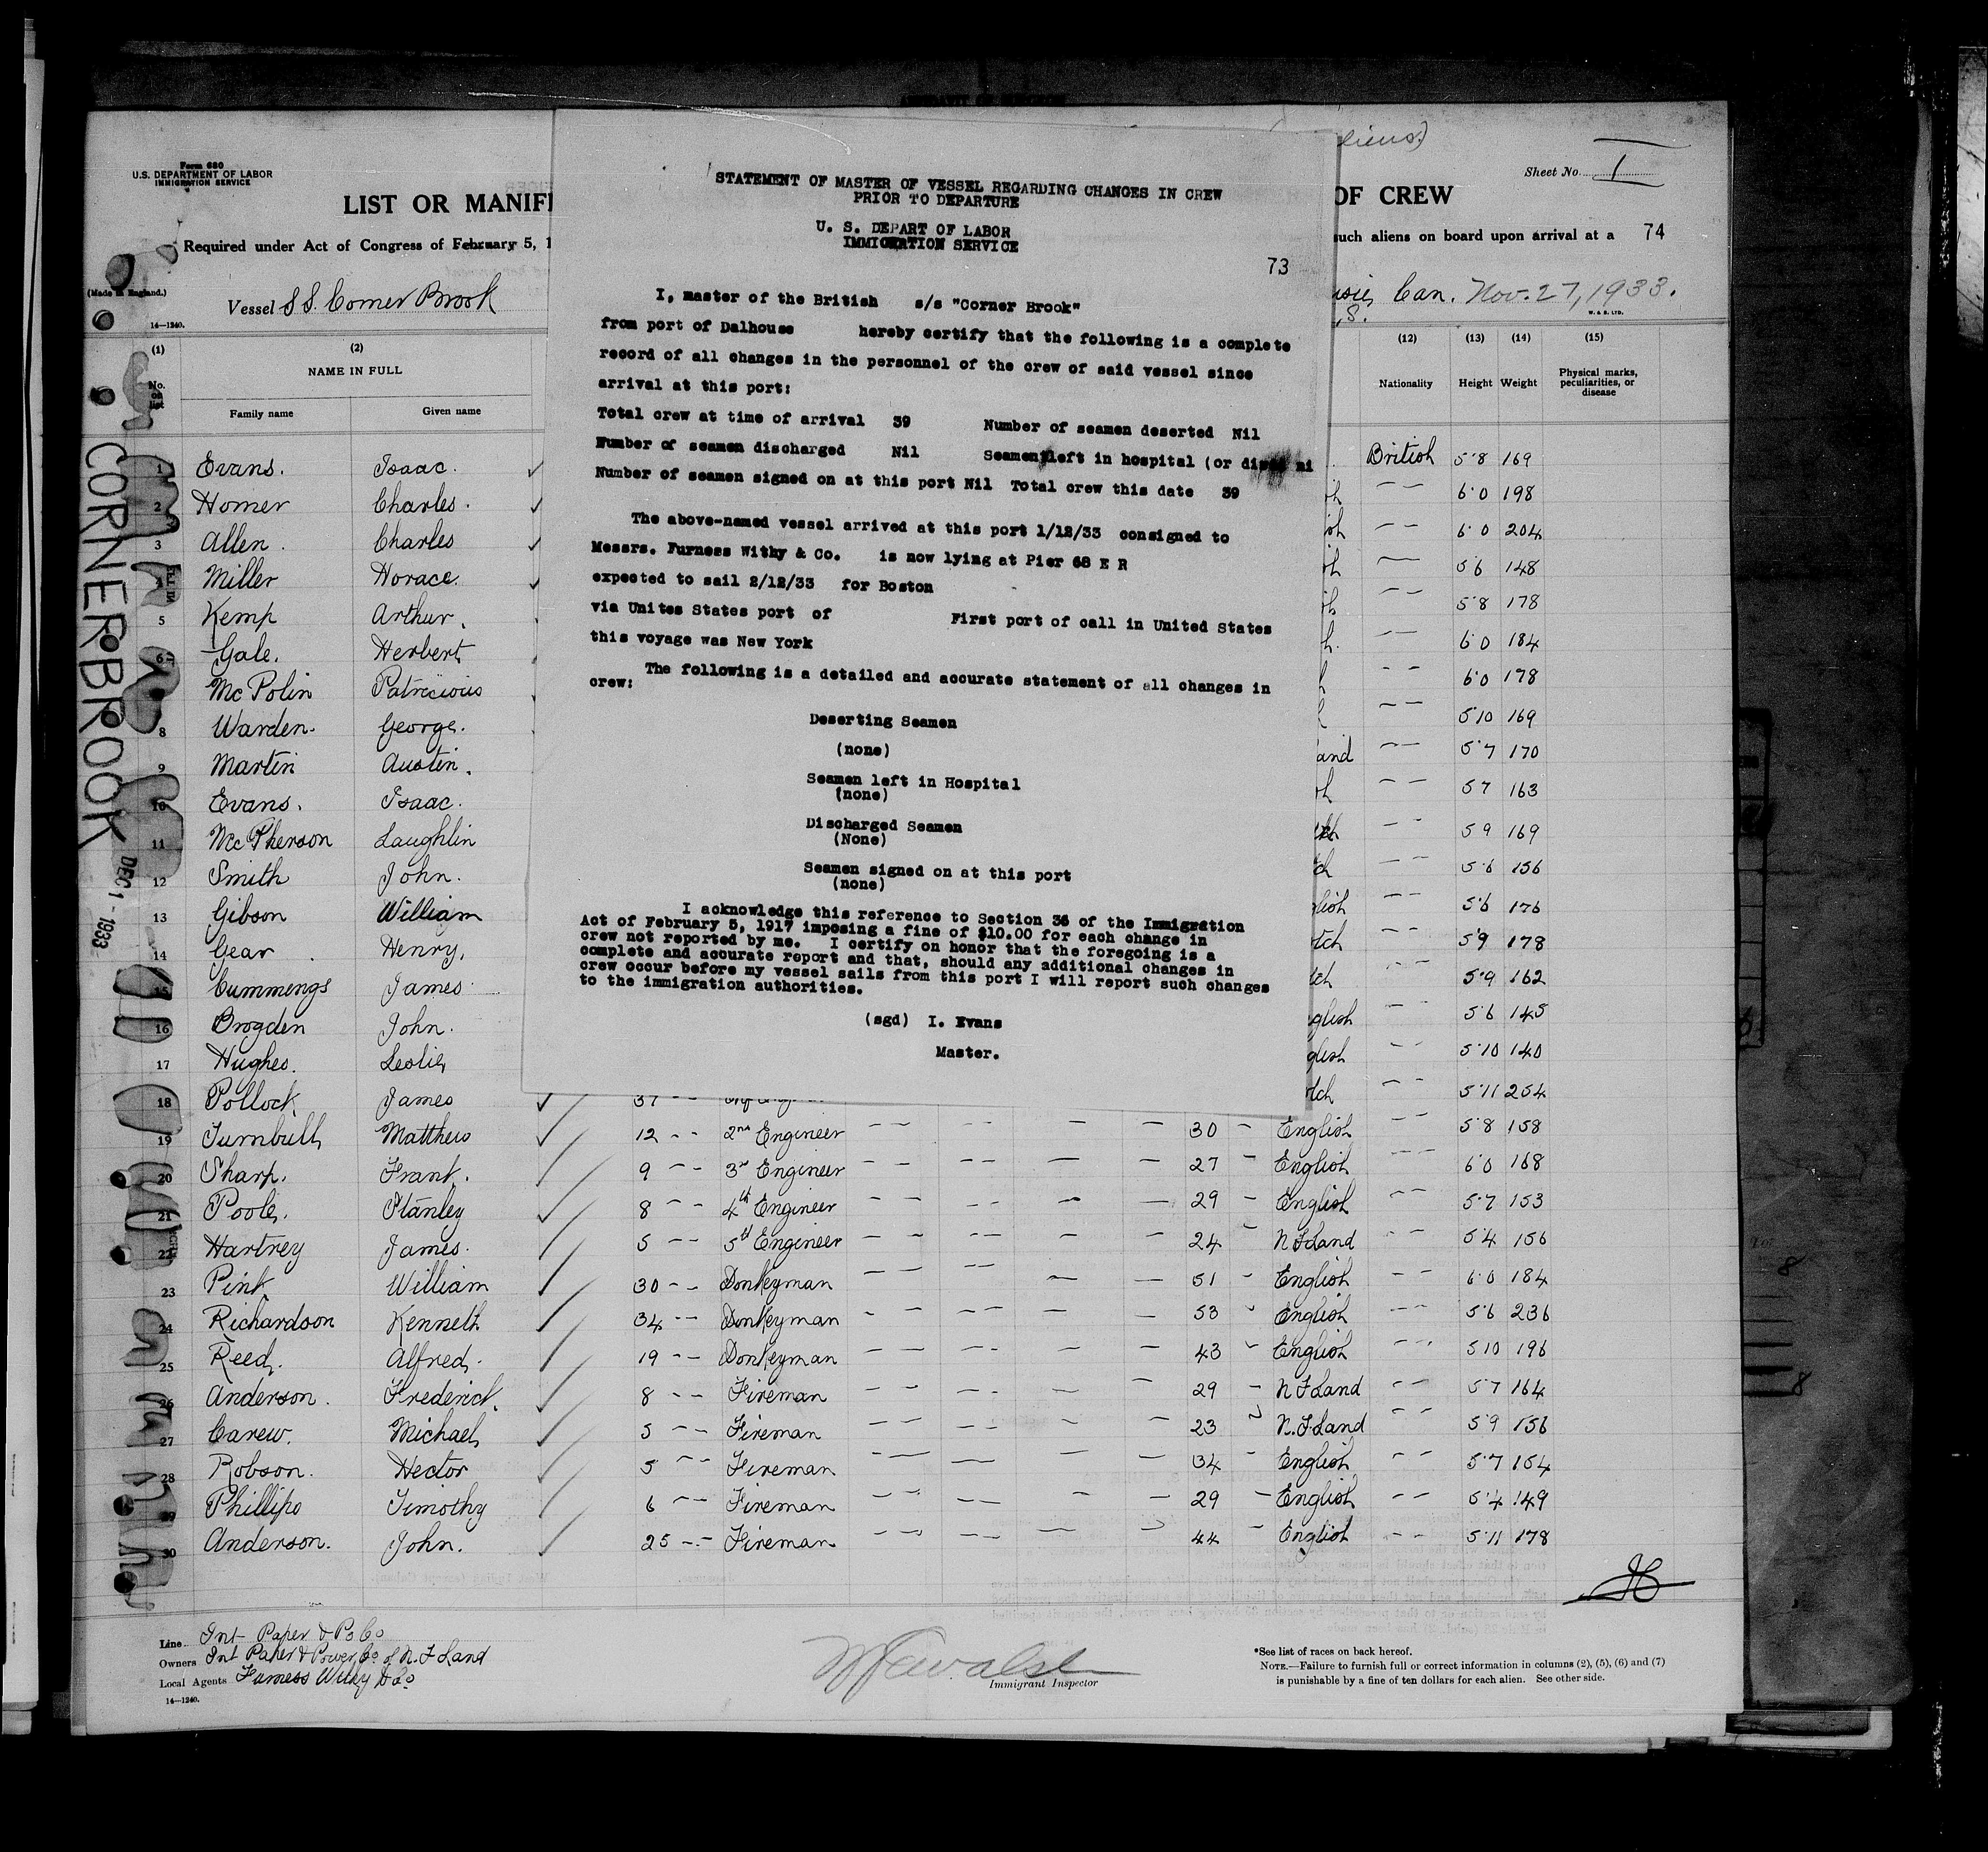 Form 680
U.S. DEPARTMENT OF LABOR
IMMIGRATION SERVICE
LIST OR MANIF
Required under Act of Congress of February 5, 1
(Made in England.)
Vessel SS. Corner Brook
14—1240.
(1)
(2)
No. on list
NAME IN FULL
Family name
Given name
Sheet No. 1
OF CREW
such aliens on board upon arrival at a
74
Can. Nov. 27, 1933.
W. & S. LTD.
(12)
(13)
(14)
(15)
Nationality
Height
Weight
Physical marks, peculiarities, or disease
STATEMENT OF MASTER OF VESSEL REGARDING CHANGES IN CREW
PRIOR TO DEPARTURE
U. S. DEPART OF LABOR
IMMIGRATION SERVICE
73
I, master of the British s/s "Corner Brook"
from port of Dalhouse hereby certify that the following is a complete
record of all changes in the personnel of the crew of said vessel since
arrival at this port:
Total crew at time of arrival 39 Number of seamen deserted Nil
Number of seamen discharged Nil Seamen left in hospital (or
Number of seamen signed on at this port Nil Total crew this date 39
The above-named vessel arrived at this port 1/12/33 consigned to
Messrs. Furness Withy & Co. is now lying at Pier 68 E R
expected to sail 2/12/33 for Boston
via Unites States port of First port of call in United States
this voyage was New York
The following is a detailed and accurate statement of all changes in
crew:
Deserting Seamen
(none)
Seamen left in Hospital
(none)
Discharged Seamen
(None)
Seamen signed on at this port
(none)
I acknowledge this reference to Section 36 of the Immigration
Act of February 5, 1917 imposing a fine of $10.00 for each change in
crew not reported by me. I certify on honor that the foregoing is a
complete and accurate report and that, should any additional changes in
crew occur before my vessel sails from this port I will report such changes
to the immigration authorities.
(sgd) I. Evans
Master.
CORNERBROOK
DEC 1 - 1933
1 Evans. Isaac. British 5'8 169
2 Homer Charles. 6'0 198
3 Allen. Charles 6'0 204
Miller Horace. 5'6 148
5 Kemp Arthur. 5'8 178
6 Gale. Herbert 6'0 184
McPolin Patricious 6'0 178
8 Warden. George. 5'10 169
9 Martin Austin. 5'7 170
10 Evans. Isaac. 5'7 163
11 McPherson Laughlin 5'9 169
12 Smith John. 5'6 156
13 Gibson William 5'6 176
14 Gear Henry. 5'9 178
15 Cummengs James 5'9 162
16 Brogden John. 5'6 145
17 Hughes. Leslie 5'10 140
18 Pollock James 37 5'11 254
19 Turnbull Matthew 12 2nd Engineer 30 English 5'8 158
20 Sharp. Frank. 9 3rd Engineer 27 English 6'0 168
21 Poole. Stanley 8 4th Engineer 29 English 5'7 153
22 Hartrey James. 5 5th Engineer 24 N F Land 5'4 156
23 Pink William 30 Donkeyman 51 English 6'0 184
24 Richardson Kenneth 34 Donkeyman 53 English 5'6 236
25 Reed. Alfred. 19 Donkeyman 43 English 5'10 196
26 Anderson. Frederick. 8 Fireman 29 N F Land 5'7 164
27 Carew. Michael 5 Fireman 23 N. F Land 5'9 156
28 Robson. Hector 5 Fireman 34 English 5'7 154
29 Phillips Timothy 6 Fireman 29 English 5'4 149
30 Anderson. John. 25 Fireman 44 English 5'11 178
Line Int Paper & Po Co
Owners Int Paper & Power Co of N. F Land
Local Agents Furness Withy & Co
14—1240.
Immigrant Inspector
*See list of races on back hereof.
NOTE.—Failure to furnish full or correct information in columns (2), (5), (6) and (7)
is punishable by a fine of ten dollars for each alien. See other side.